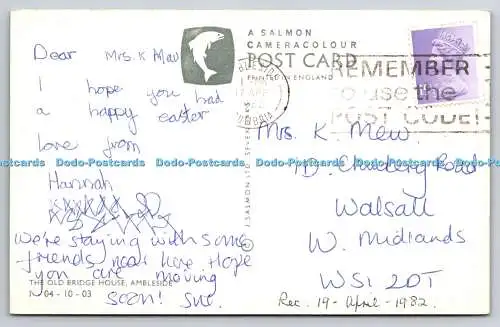 Dear Mrs. K Mew
I hope you had
a happy easter
love from
Hannah
We're staying with some
friends near here Hope
you are moving
soon! Sue.
THE OLD BRIDGE HOUSE, AMBLESIDE
04-10-03
A SALMON
CAMERACOLOUR
POST CARD
PRINTED IN ENGLAND
CUMBRIA
REMEMBER
to use the
POST CODE!
Mrs. K. Mew.
Road
Walsall
W. Midlands
WS1 2DT
Rec. 19-April-1982.
Dodo-Postcards Dodo-Postcards Dodo-Postcards Dodo-Postcards Dodo-Postcards Dodo-Postcards